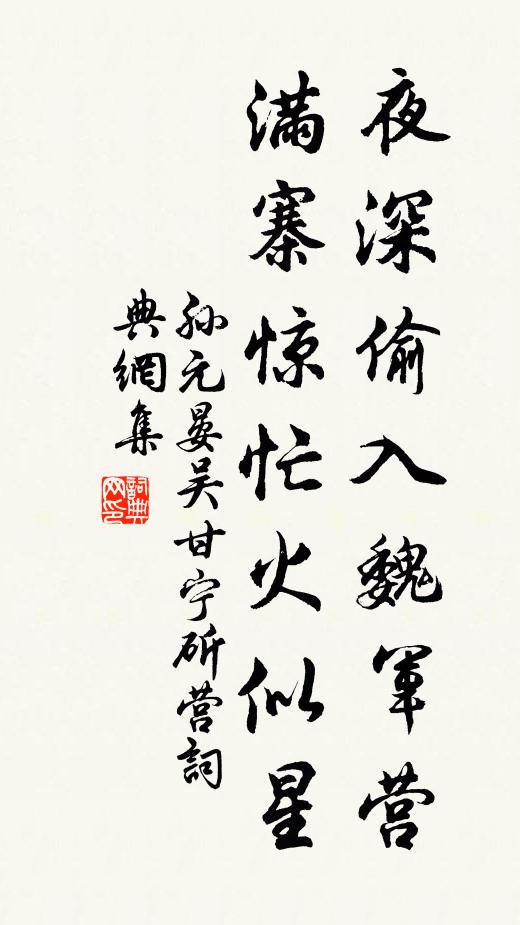 夜深偷入魏军营
满寨惊忙火似星
孙元晏吴甘宁斫营词
典網集
詞典网印